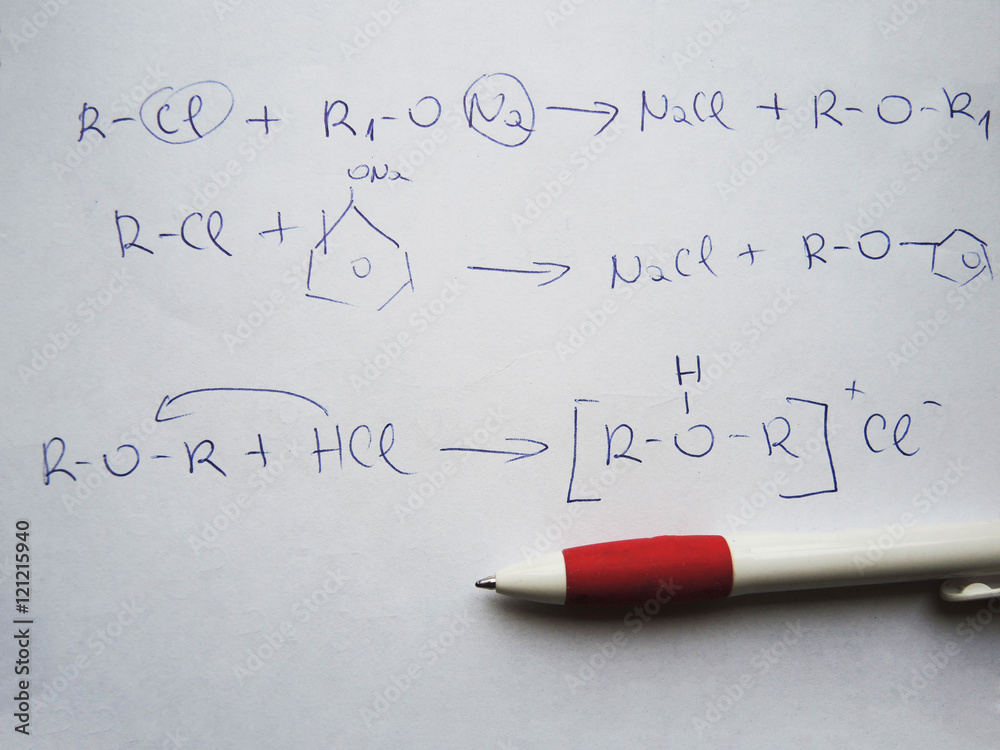 R-Cl + R₁-O Na → NaCl + R-O-R₁
ONa
R-Cl + → NaCl + R-O-
H
R-O-R + HCl → [R-O-R]⁺ Cl⁻
Adobe Stock | #121215940